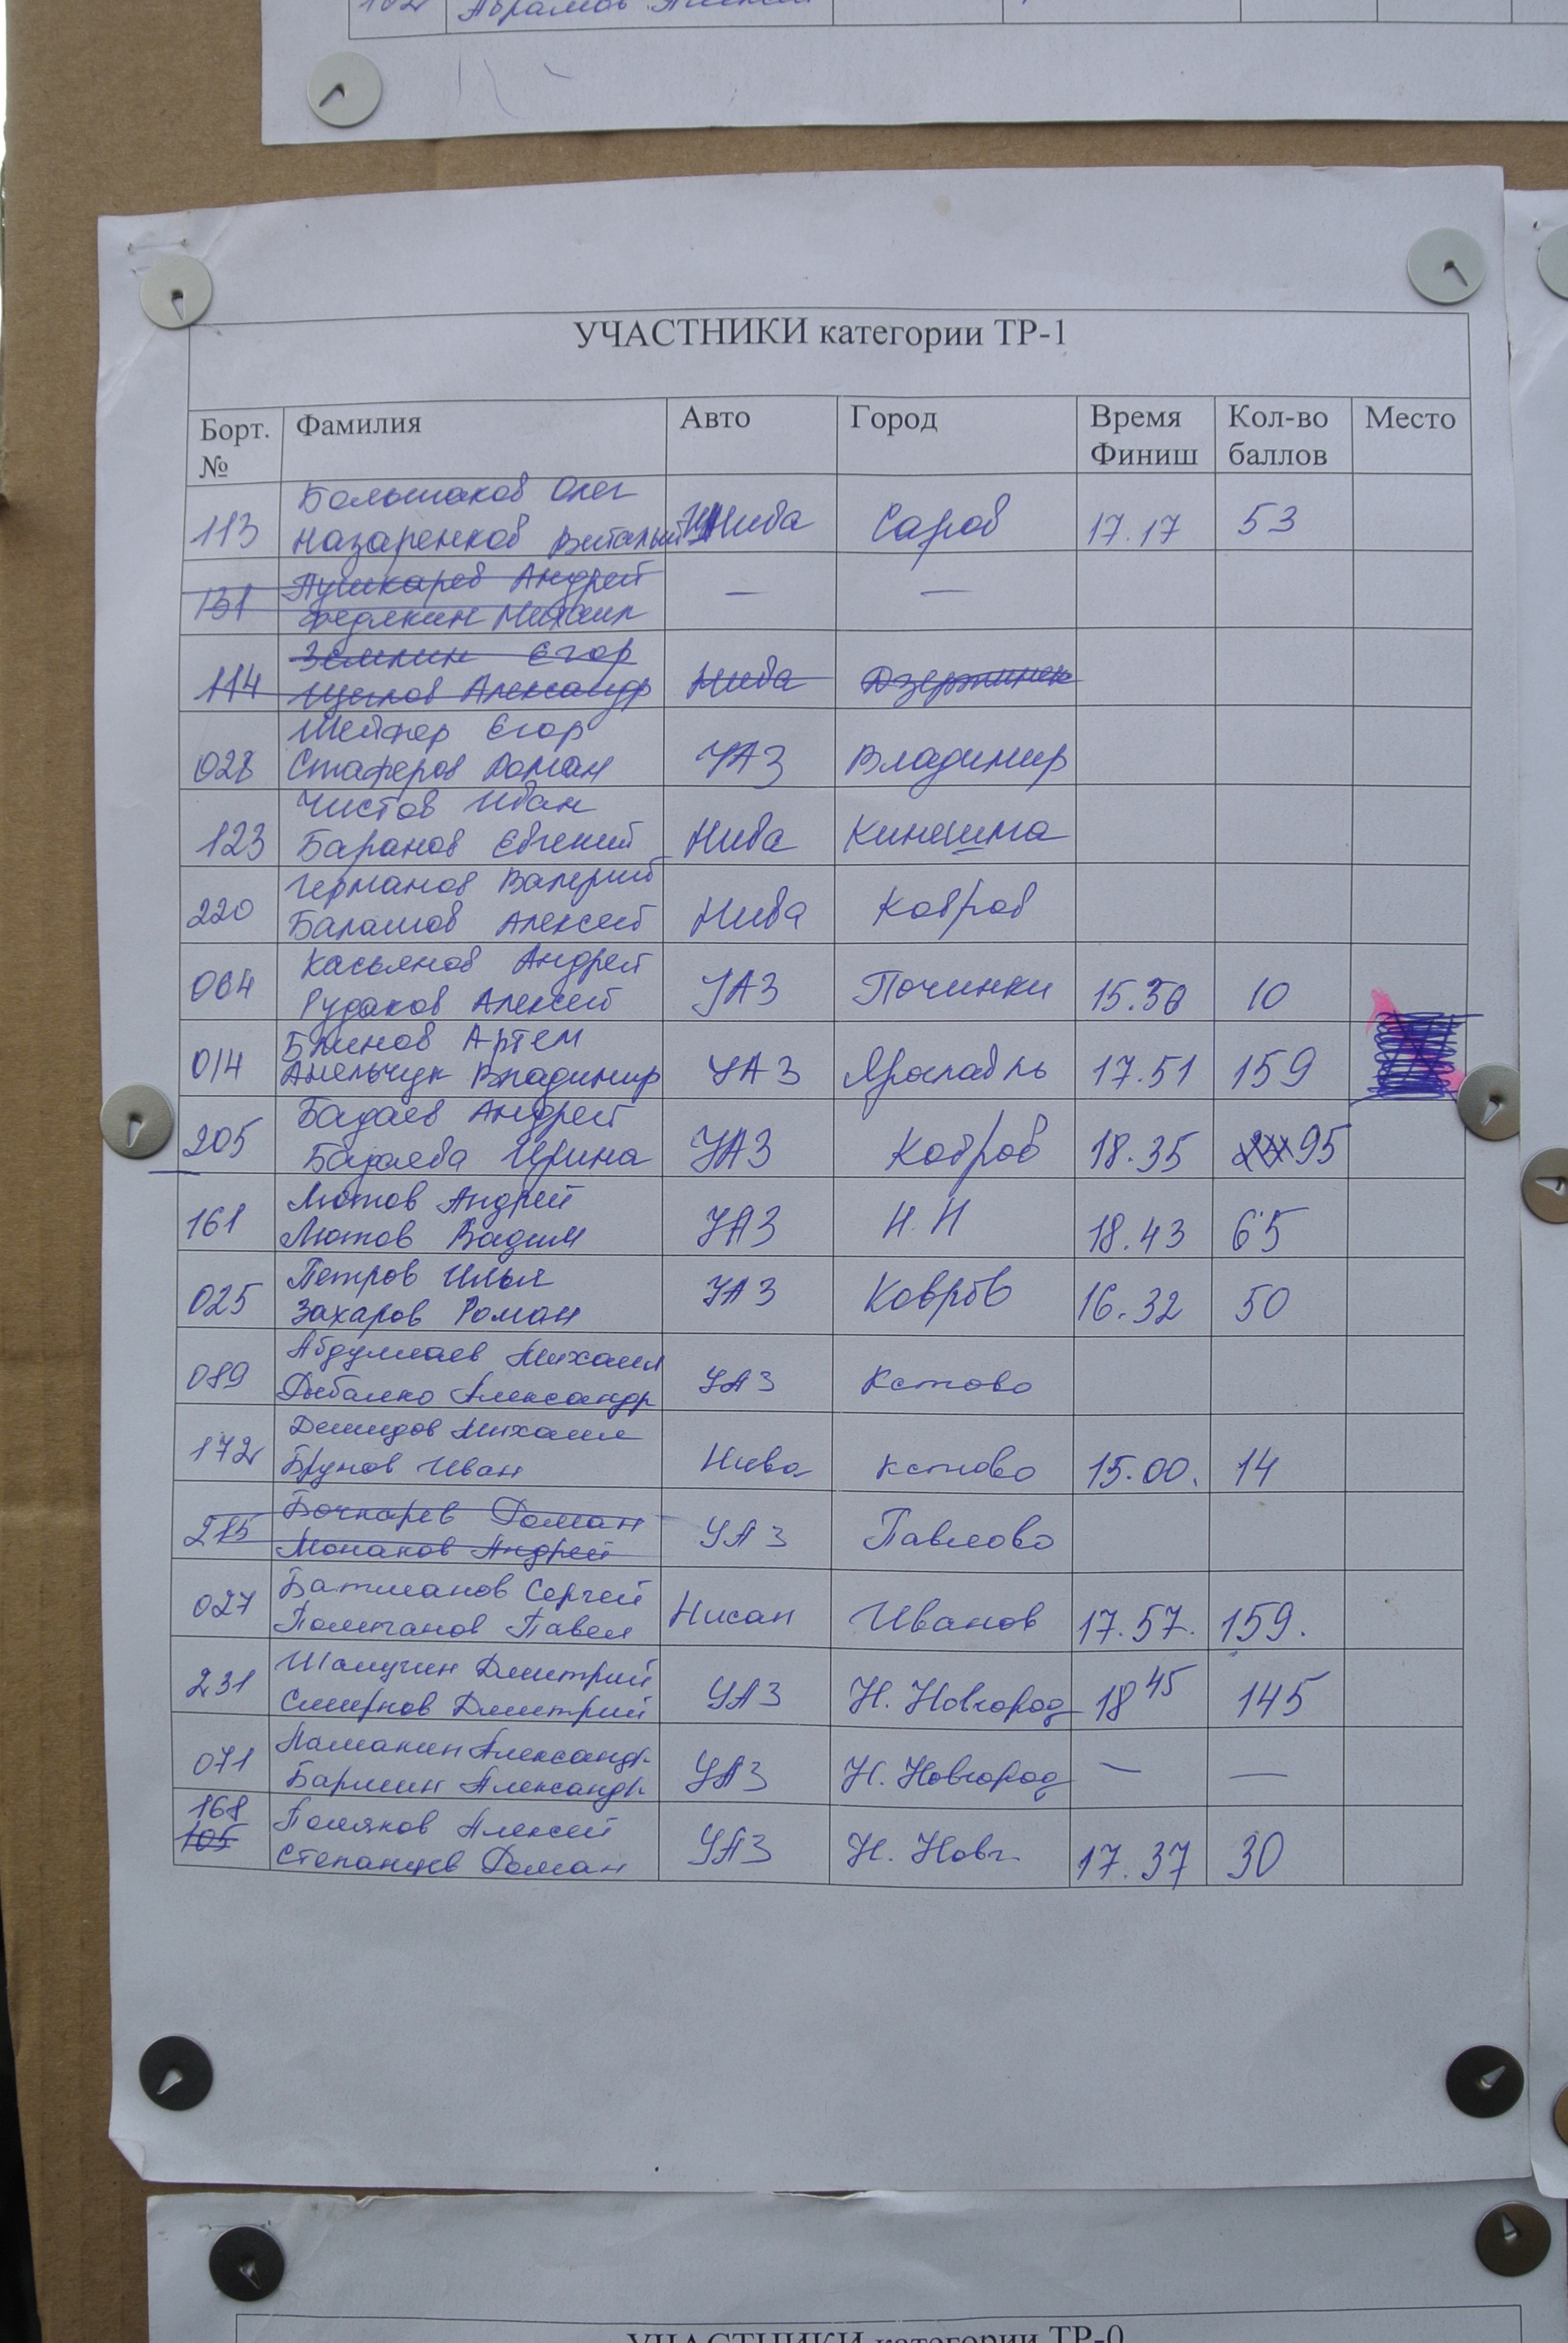 Абрамов Алексей
УЧАСТНИКИ категории ТР-1
Борт. № Фамилия Авто Город Время Финиш Кол-во баллов Место
Большаков Олег
113 Назаренков Виталий Нива Саров 17.17 53
Пушкарев Андрей
131 Федякин Михаил — —
Землин Егор
114 Щеглов Александр Нива Дзержинск
Шейнер Егор
028 Стаферов Роман УАЗ Владимир
Чистов Иван
123 Баранов Евгений Нива Кинешма
Германов Валерий
220 Балашов Алексей Нива Ковров
Касьянов Андрей
064 Рудаков Алексей УАЗ Починки 15.30 10
Блинов Артем
014 Амельчук Владимир УАЗ Ярославль 17.51 159
Бадаев Андрей
205 Бадаева Ирина УАЗ Ковров 18.35 95
Лютов Андрей
161 Лютов Вадим УАЗ Н.Н 18.43 65
Петров Илья
025 Захаров Роман УАЗ Ковров 16.32 50
Абдуллаев Михаил
089 Рыбалко Александр УАЗ Кстово
Демидов Михаил
172 Брунов Иван Нива Кстово 15.00. 14
Бочкарев Роман
215 Монахов Андрей УАЗ Павлово
Батманов Сергей
027 Полетанов Павел Нисан Иванов 17.57. 159.
Шамшин Дмитрий
231 Смирнов Дмитрий УАЗ Н. Новгород 18 45 145
Ламакин Александр
071 Бармин Александр УАЗ Н. Новгород — —
168 Поляков Алексей
105 Степанцев Роман УАЗ Н. Новг. 17.37 30
УЧАСТНИКИ категории ТР-0